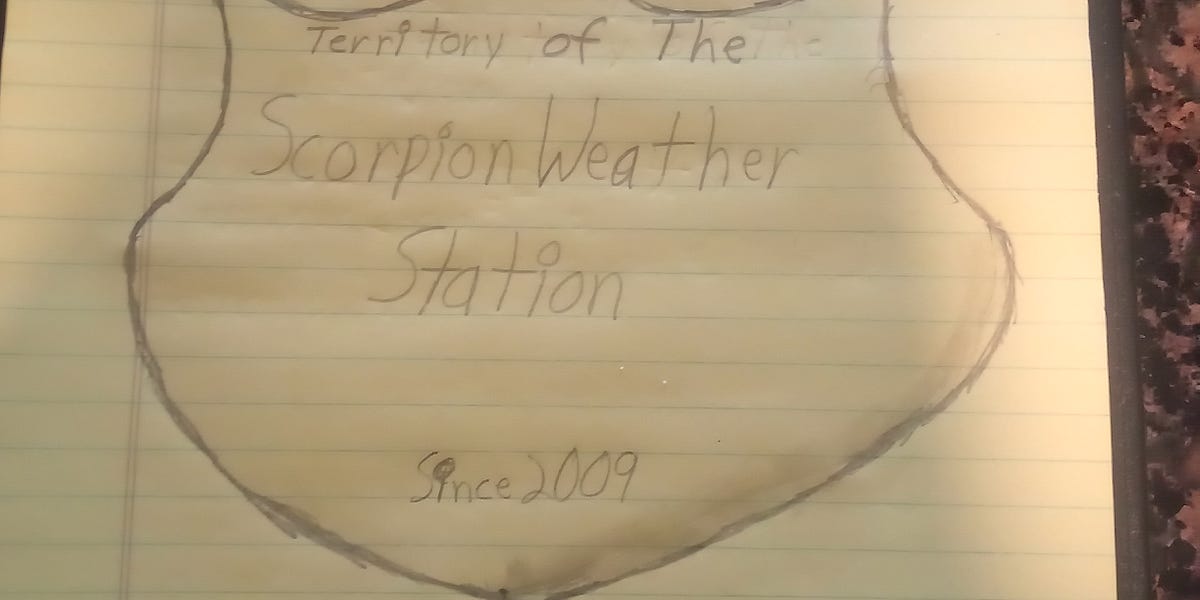 Territory of The
Scorpion Weather
Station
Since 2009